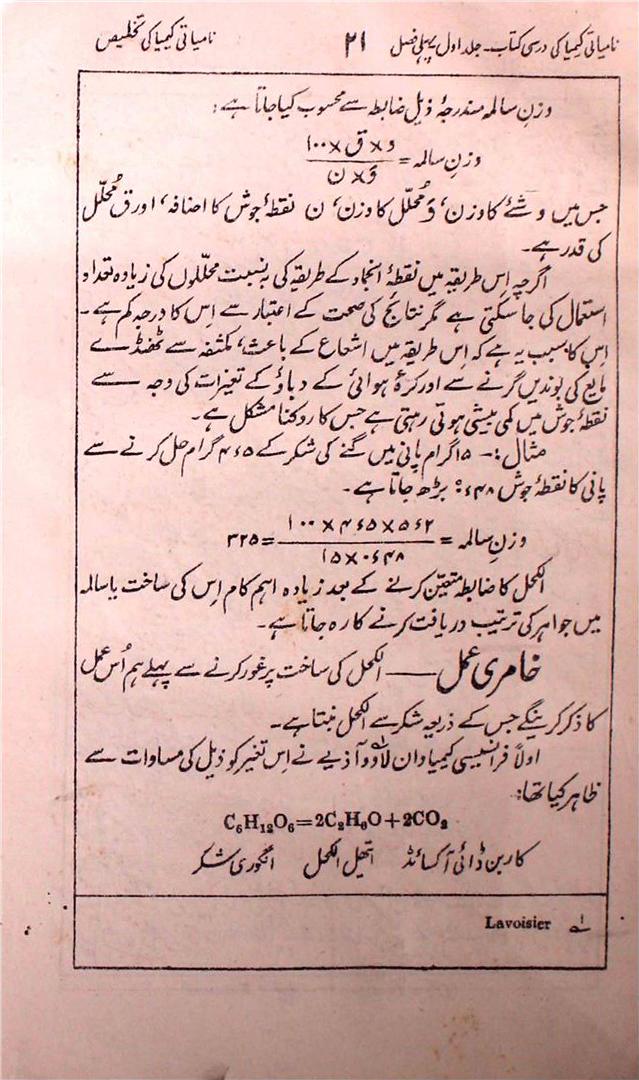 نامیاتی کیمیا کی درسی کتاب۔ جلد اول پہلی فصل ۲۱ نامیاتی کیمیا کی تخلیص
وزنِ سالمہ مندرجۂ ذیل ضابطہ سے محسوب کیا جاتا ہے:
وزنِ سالمہ = و × ق × ۱۰۰ / وَ × ن
جس میں و شئے کا وزن، وَ مُحلّل کا وزن، ن نقطۂ جوش کا اضافہ، اور ق مُحلّل
کی قدر ہے۔
اگرچہ اِس طریقہ میں نقطۂ انجماد کے طریقہ کی بہ نسبت محلّلوں کی زیادہ تعداد
استعمال کی جا سکتی ہے مگر نتائج کی صحت کے اعتبار سے اِس کا درجہ کم ہے۔
اِس کا سبب یہ ہے کہ اِس طریقہ میں اشعاع کے باعث، مکثفہ سے ٹھنڈے
مایع کی بوندیں گرنے سے اور کرۂ ہوائی کے دباؤ کے تغیرات کی وجہ سے
نقطۂ جوش میں کمی بیشی ہوتی رہتی ہے جس کا روکنا مشکل ہے۔
مثال:۔ ۱۵ گرام پانی میں گنے کی شکر کے ۴۶۵ گرام حل کرنے سے
پانی کا نقطۂ جوش ۰۶۴۸° بڑھ جاتا ہے۔
وزنِ سالمہ = ۵۶۲ × ۴۶۵ × ۱۰۰ / ۰۶۴۸ × ۱۵ = ۳۲۵
الکحل کا ضابطہ متعین کرنے کے بعد زیادہ اہم کام اِس کی ساخت یا سالمہ
میں جواہر کی ترتیب دریافت کرنے کا رہ جاتا ہے۔
خامری عمل —— الکحل کی ساخت پر غور کرنے سے پہلے ہم اُس عمل
کا ذکر کرینگے جس کے ذریعہ شکر سے الکحل بنتا ہے۔
اولاً فرانسیسی کیمیا دان لاووآذیے۱ نے اِس تغیر کو ذیل کی مساوات سے
ظاہر کیا تھا:
C₆H₁₂O₆=2C₂H₆O+2CO₂
کاربن ڈائی آکسائڈ اتھیل الکحل انگوری شکر
۱ Lavoisier